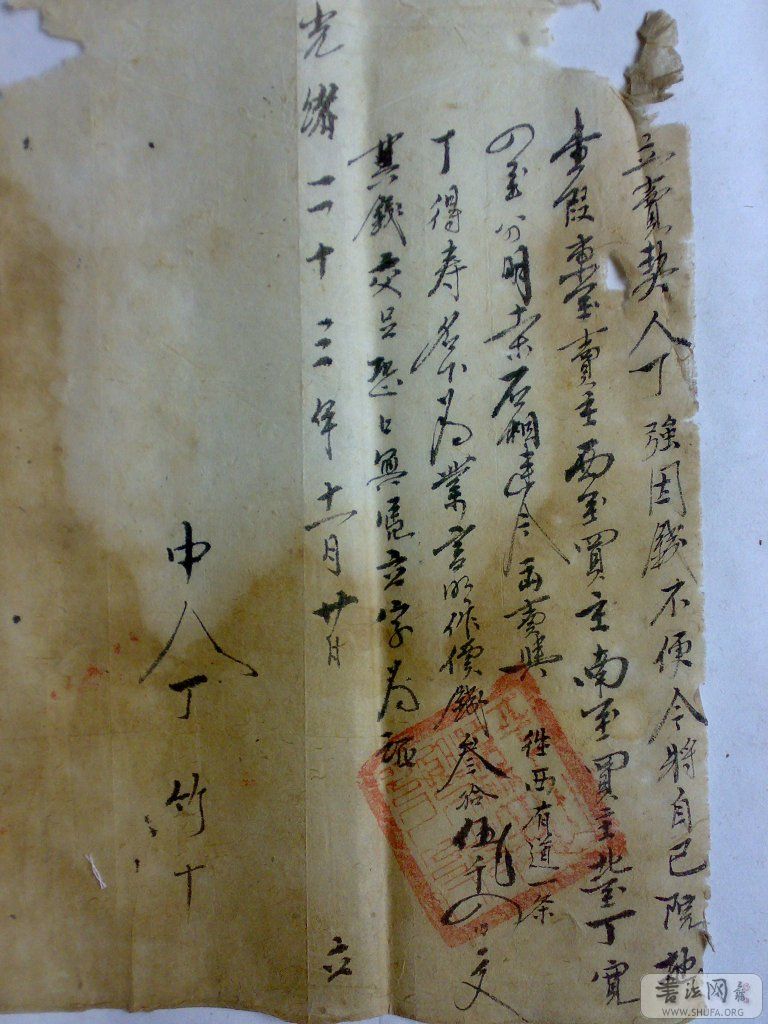 立賣契人丁強因錢不便今將自己院地
壹段東至賣主西至買主南至買主北至丁寬
四至分明土木石相連今出賣與
往西有道一条
丁得寿名下為業言明作價錢叁拾伍千文
其錢交足恐口無憑立字為証
光緒二十三年十一月廿日 立
中人丁竹十
書法网
WWW.SHUFA.ORG